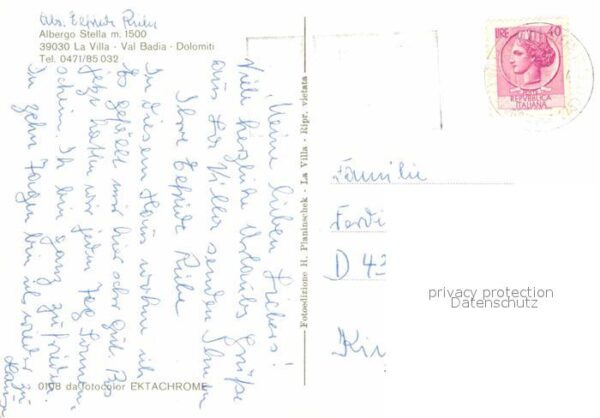 Abs. Elfriede Riehr
Albergo Stella m. 1500
39030 La Villa - Val Badia - Dolomiti
Tel. 0471/85 032
Meine lieben
Viele herzliche Urlaubs Grüße
aus La Villa senden Ihnen
Ihre Elfriede
In diesem Haus wohne ich
Es gefällt mir hier sehr gut. Bis
jetzt hatten wir jeden Tag Sonnen-
schein. Ich bin ganz zufrieden.
In zehn Tagen bin ich wieder zu
Hause
0108 da fotocolor EKTACHROME
Fotoedizione H. Planinschek - La Villa - Ripr. vietata
LIRE 40
POSTE
REPVBBLICA
ITALIANA
Familie
Ferdi
D 43
Kir
privacy protection
Datenschutz